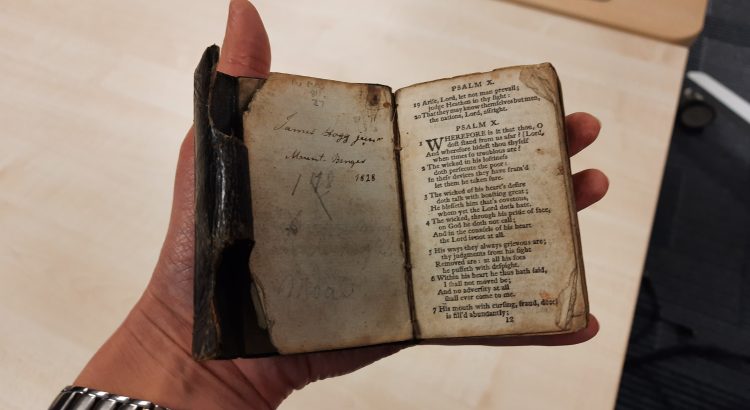 27
James Hogg junr
Mount Benger
1828
PSALM X.
19 Ariſe, Lord, let not man prevail;
judge Heathen in thy ſight:
20 That they may know themſelves but men,
the nations, Lord, affright.
PSALM X.
1 WHEREFORE is it that thou, O Lord,
doſt ſtand from us afar?
And wherefore hideſt thou thyſelf
when times ſo troublous are?
2 The wicked in his loftineſs
doth perſecute the poor:
In theſe devices they have fram'd
let them be taken ſure.
3 The wicked of his heart's deſire
doth talk with boaſting great;
He bleſſeth him that's covetous,
whom yet the Lord doth hate.
4 The wicked, through his pride of face,
on God he doth not call;
And in the counſels of his heart
the Lord is not at all.
5 His ways they always grievous are;
thy judgments from his ſight
Removed are: at all his foes
he puffeth with deſpight.
6 Within his heart he thus hath ſaid,
I ſhall not moved be;
And no adverſity at all
ſhall ever come to me.
7 His mouth with curſing, fraud, deceit
is fill'd abundantly;
12